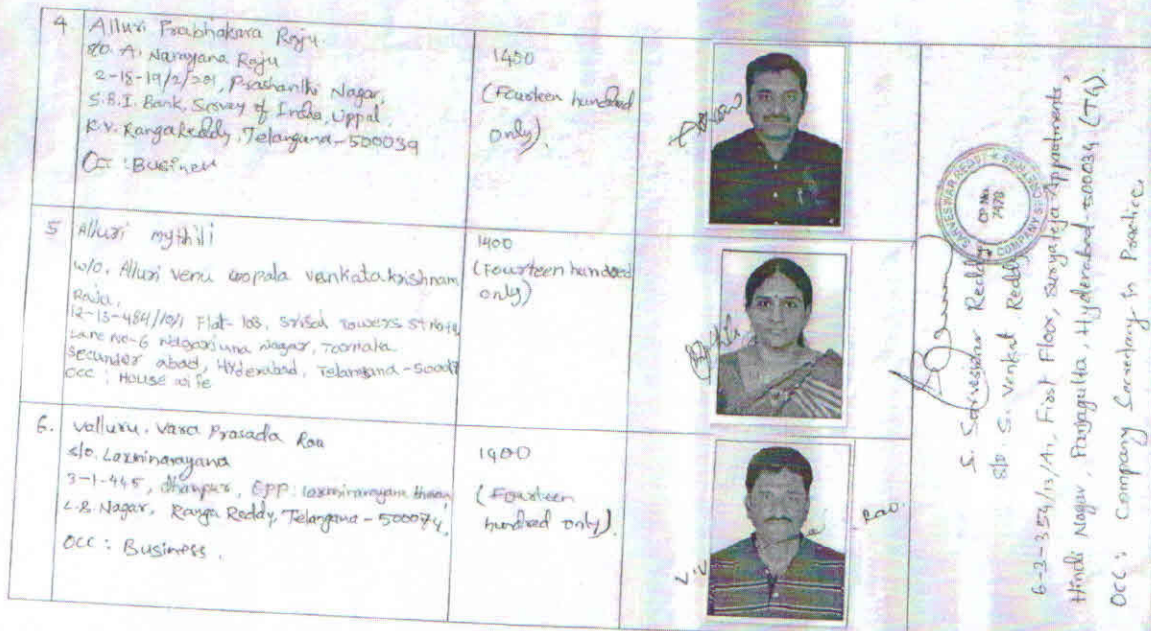 4. Alluri Prabhakara Raju.
S/o. A. Narayana Raju
2-18-19/2/201, Prashanthi Nagar,
S.B.I. Bank, Survey of India, Uppal,
K.V. Rangareddy, Telangana-500039
Occ: Business
1400
(Fourteen hundred
only).
5 Alluri mythili
w/o. Alluri Venu Gopala Venkata krishnam
Raju,
12-13-484/10/1 Flat-103, Towers
Lane no-6 Nagarjuna nagar, Tarnaka
Secunder abad, Hyderabad, Telangana-500017
OCC: House wife
1400
(Fourteen hundred
only)
6. Valluru. Vara Prasada Rao
S/o. Laxminarayana
3-1-445, OPP: laxminarayana
L.B. Nagar, Ranga Reddy, Telangana-500074.
OCC: Business.
1400
(Fourteen
hundred only).
V.V Rao.
SARVESWAR REDDY
COMPANY
CP No.
7478
S. Sarveswar Reddy
S/o S. Venkat Reddy
6-3-354/13/A1, First Floor, Suryateja Appartments,
Hindi Nagar, Panjagutta, Hyderabad-500034 (TG).
OCC: Company Secretary in Practice.